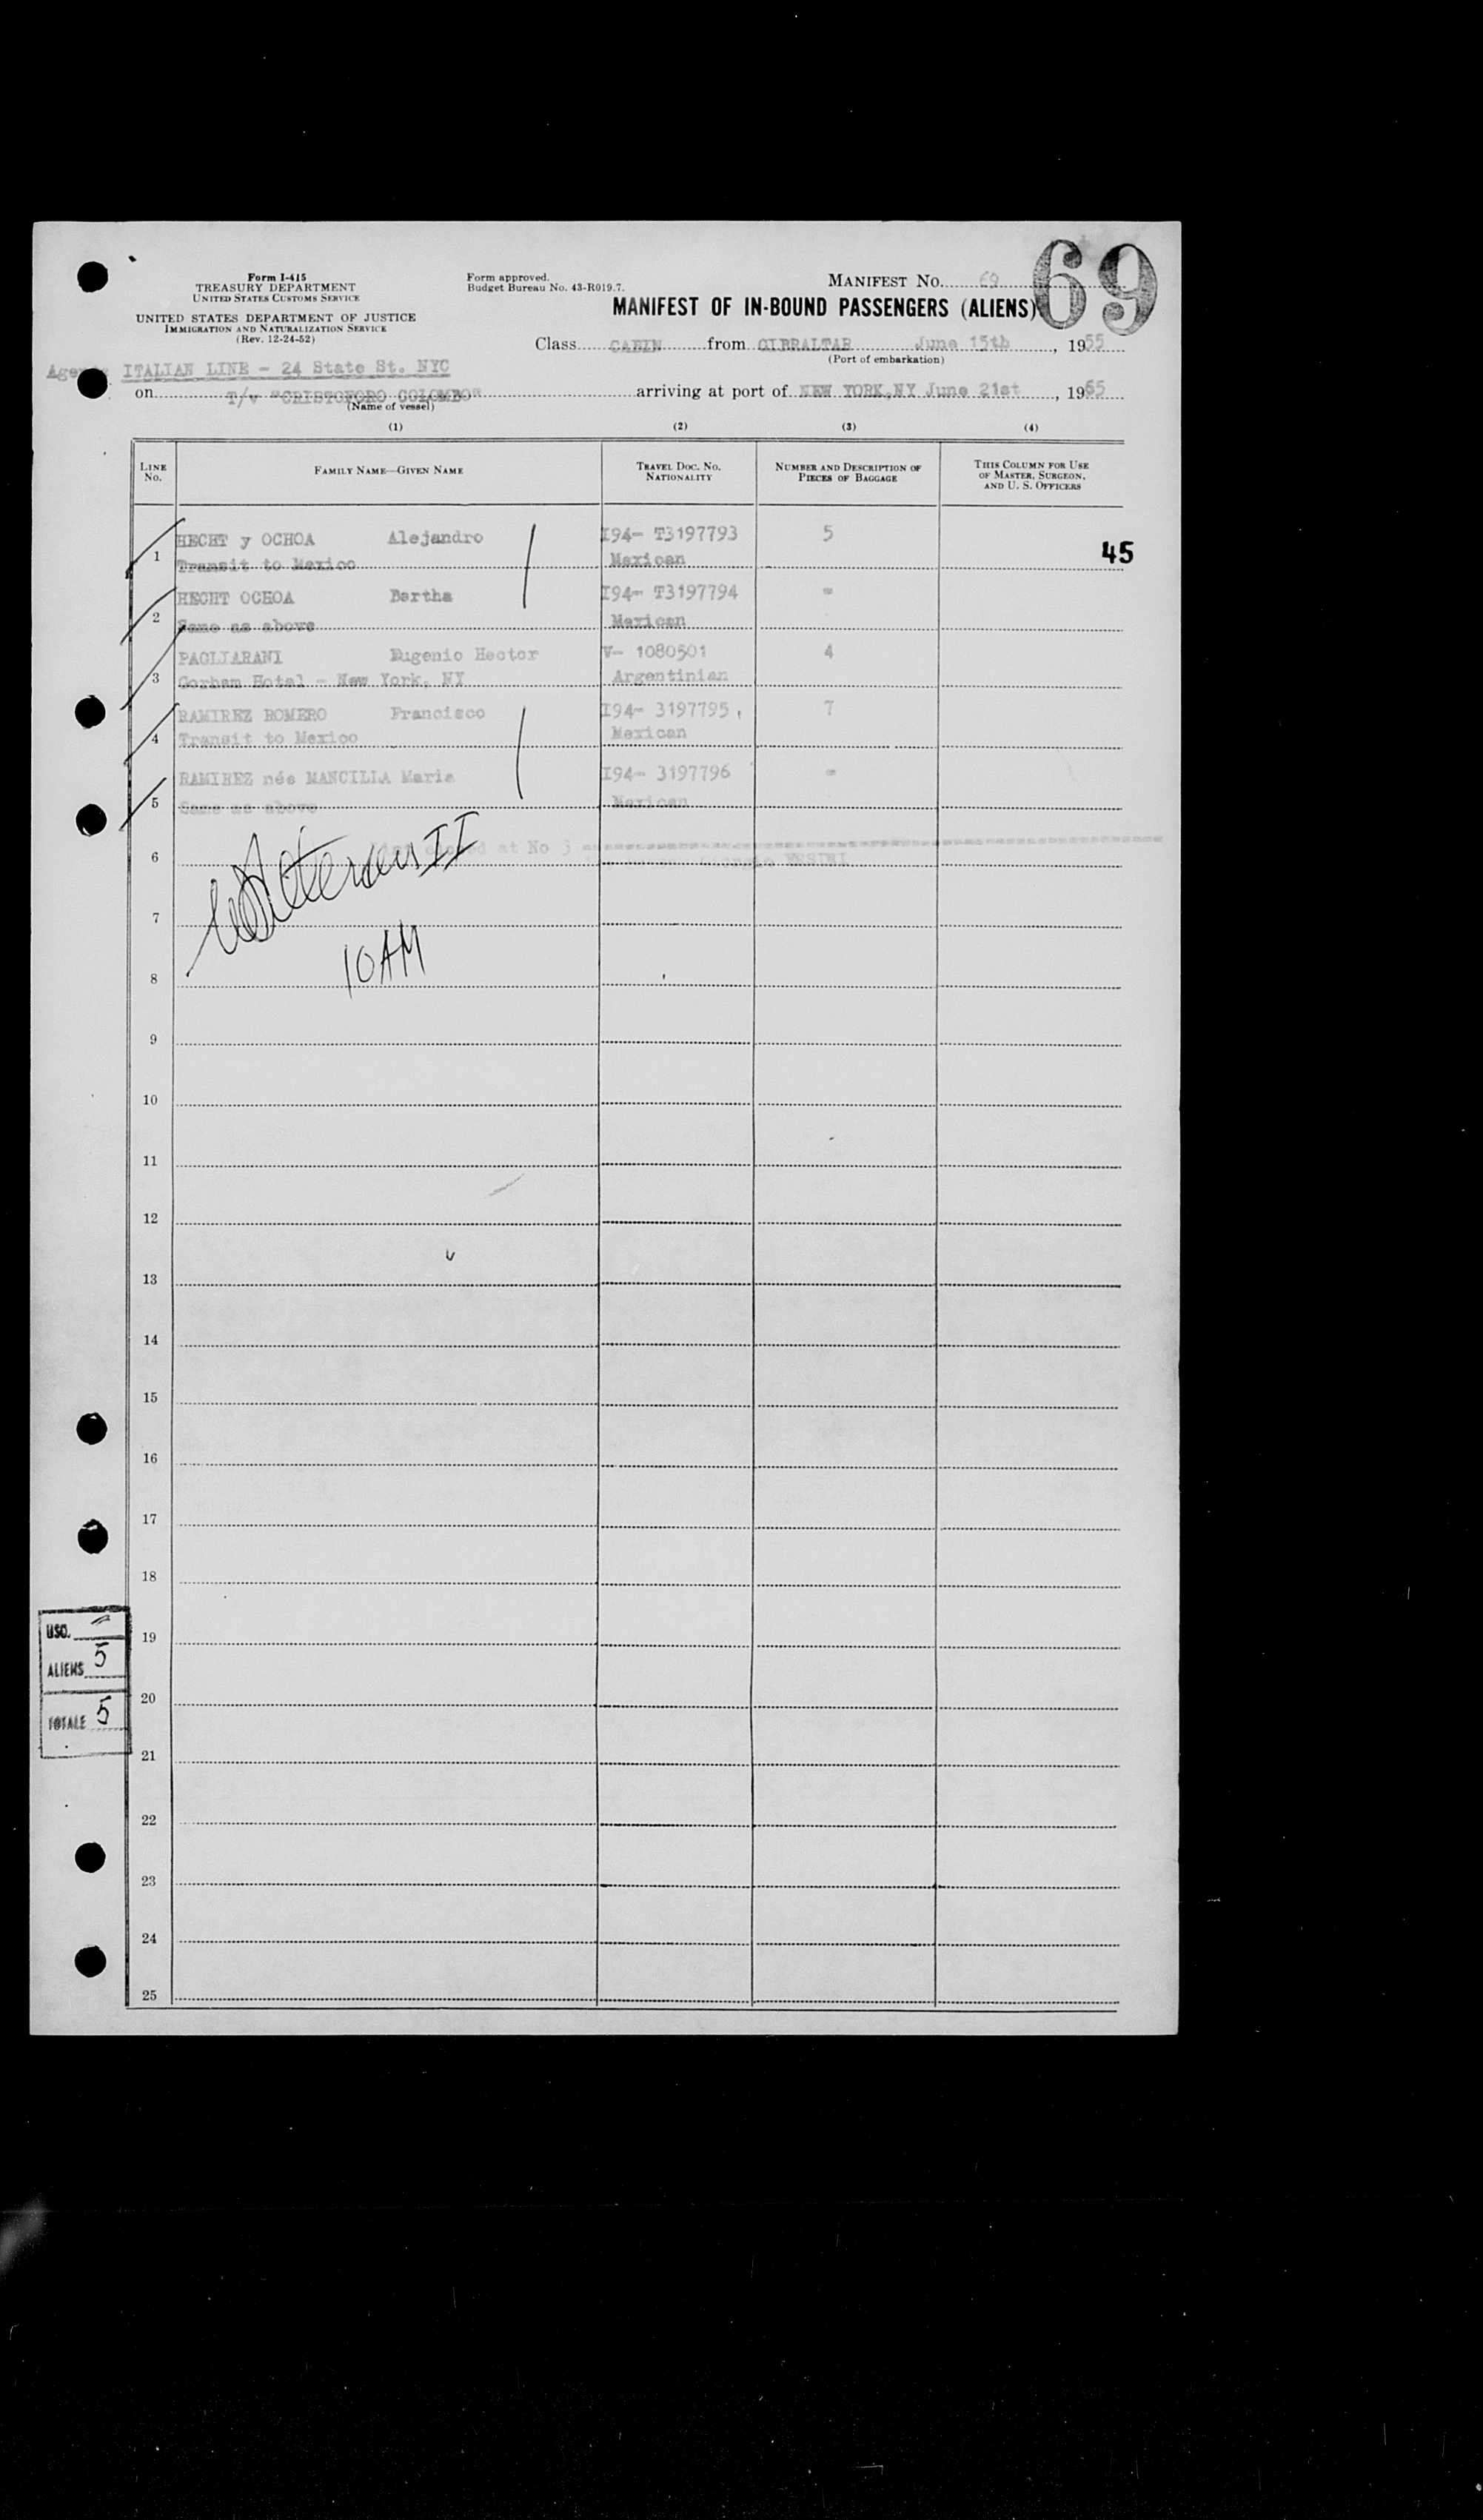 69
Form I-415
TREASURY DEPARTMENT
UNITED STATES CUSTOMS SERVICE
UNITED STATES DEPARTMENT OF JUSTICE
IMMIGRATION AND NATURALIZATION SERVICE
(Rev. 12-24-52)
Form approved.
Budget Bureau No. 43-R019.7.
MANIFEST No. 69
MANIFEST OF IN-BOUND PASSENGERS (ALIENS)
Class CABIN from GIBRALTAR June 15th, 1955
(Port of embarkation)
ITALIAN LINE - 24 State St. NYC
on T/v "CRISTOFORO COLOMBO" arriving at port of NEW YORK,NY June 21st, 1955
(Name of vessel)
(1) (2) (3) (4)
LINE No. FAMILY NAME—GIVEN NAME TRAVEL DOC. NO. NATIONALITY NUMBER AND DESCRIPTION OF PIECES OF BAGGAGE THIS COLUMN FOR USE OF MASTER, SURGEON, AND U. S. OFFICERS
1 HECHT y OCHOA Alejandro I94- T3197793 5
Transit to Mexico Mexican 45
2 HECHT OCHOA Bertha I94- T3197794 "
Same as above Mexican
3 PAGLIARANI Eugenio Hector V- 1080501 4
Gorham Hotel - New York, NY Argentinian
4 RAMIREZ ROMERO Francisco I94- 3197795 7
Transit to Mexico Mexican
5 RAMIREZ née MANCILLA Maria I94- 3197796 "
Same as above Mexican
6 at No
7
10AM
8
9
10
11
12
13
14
15
16
17
18
19
20
21
22
23
24
25
USC.
ALIENS 5
TOTALE 5